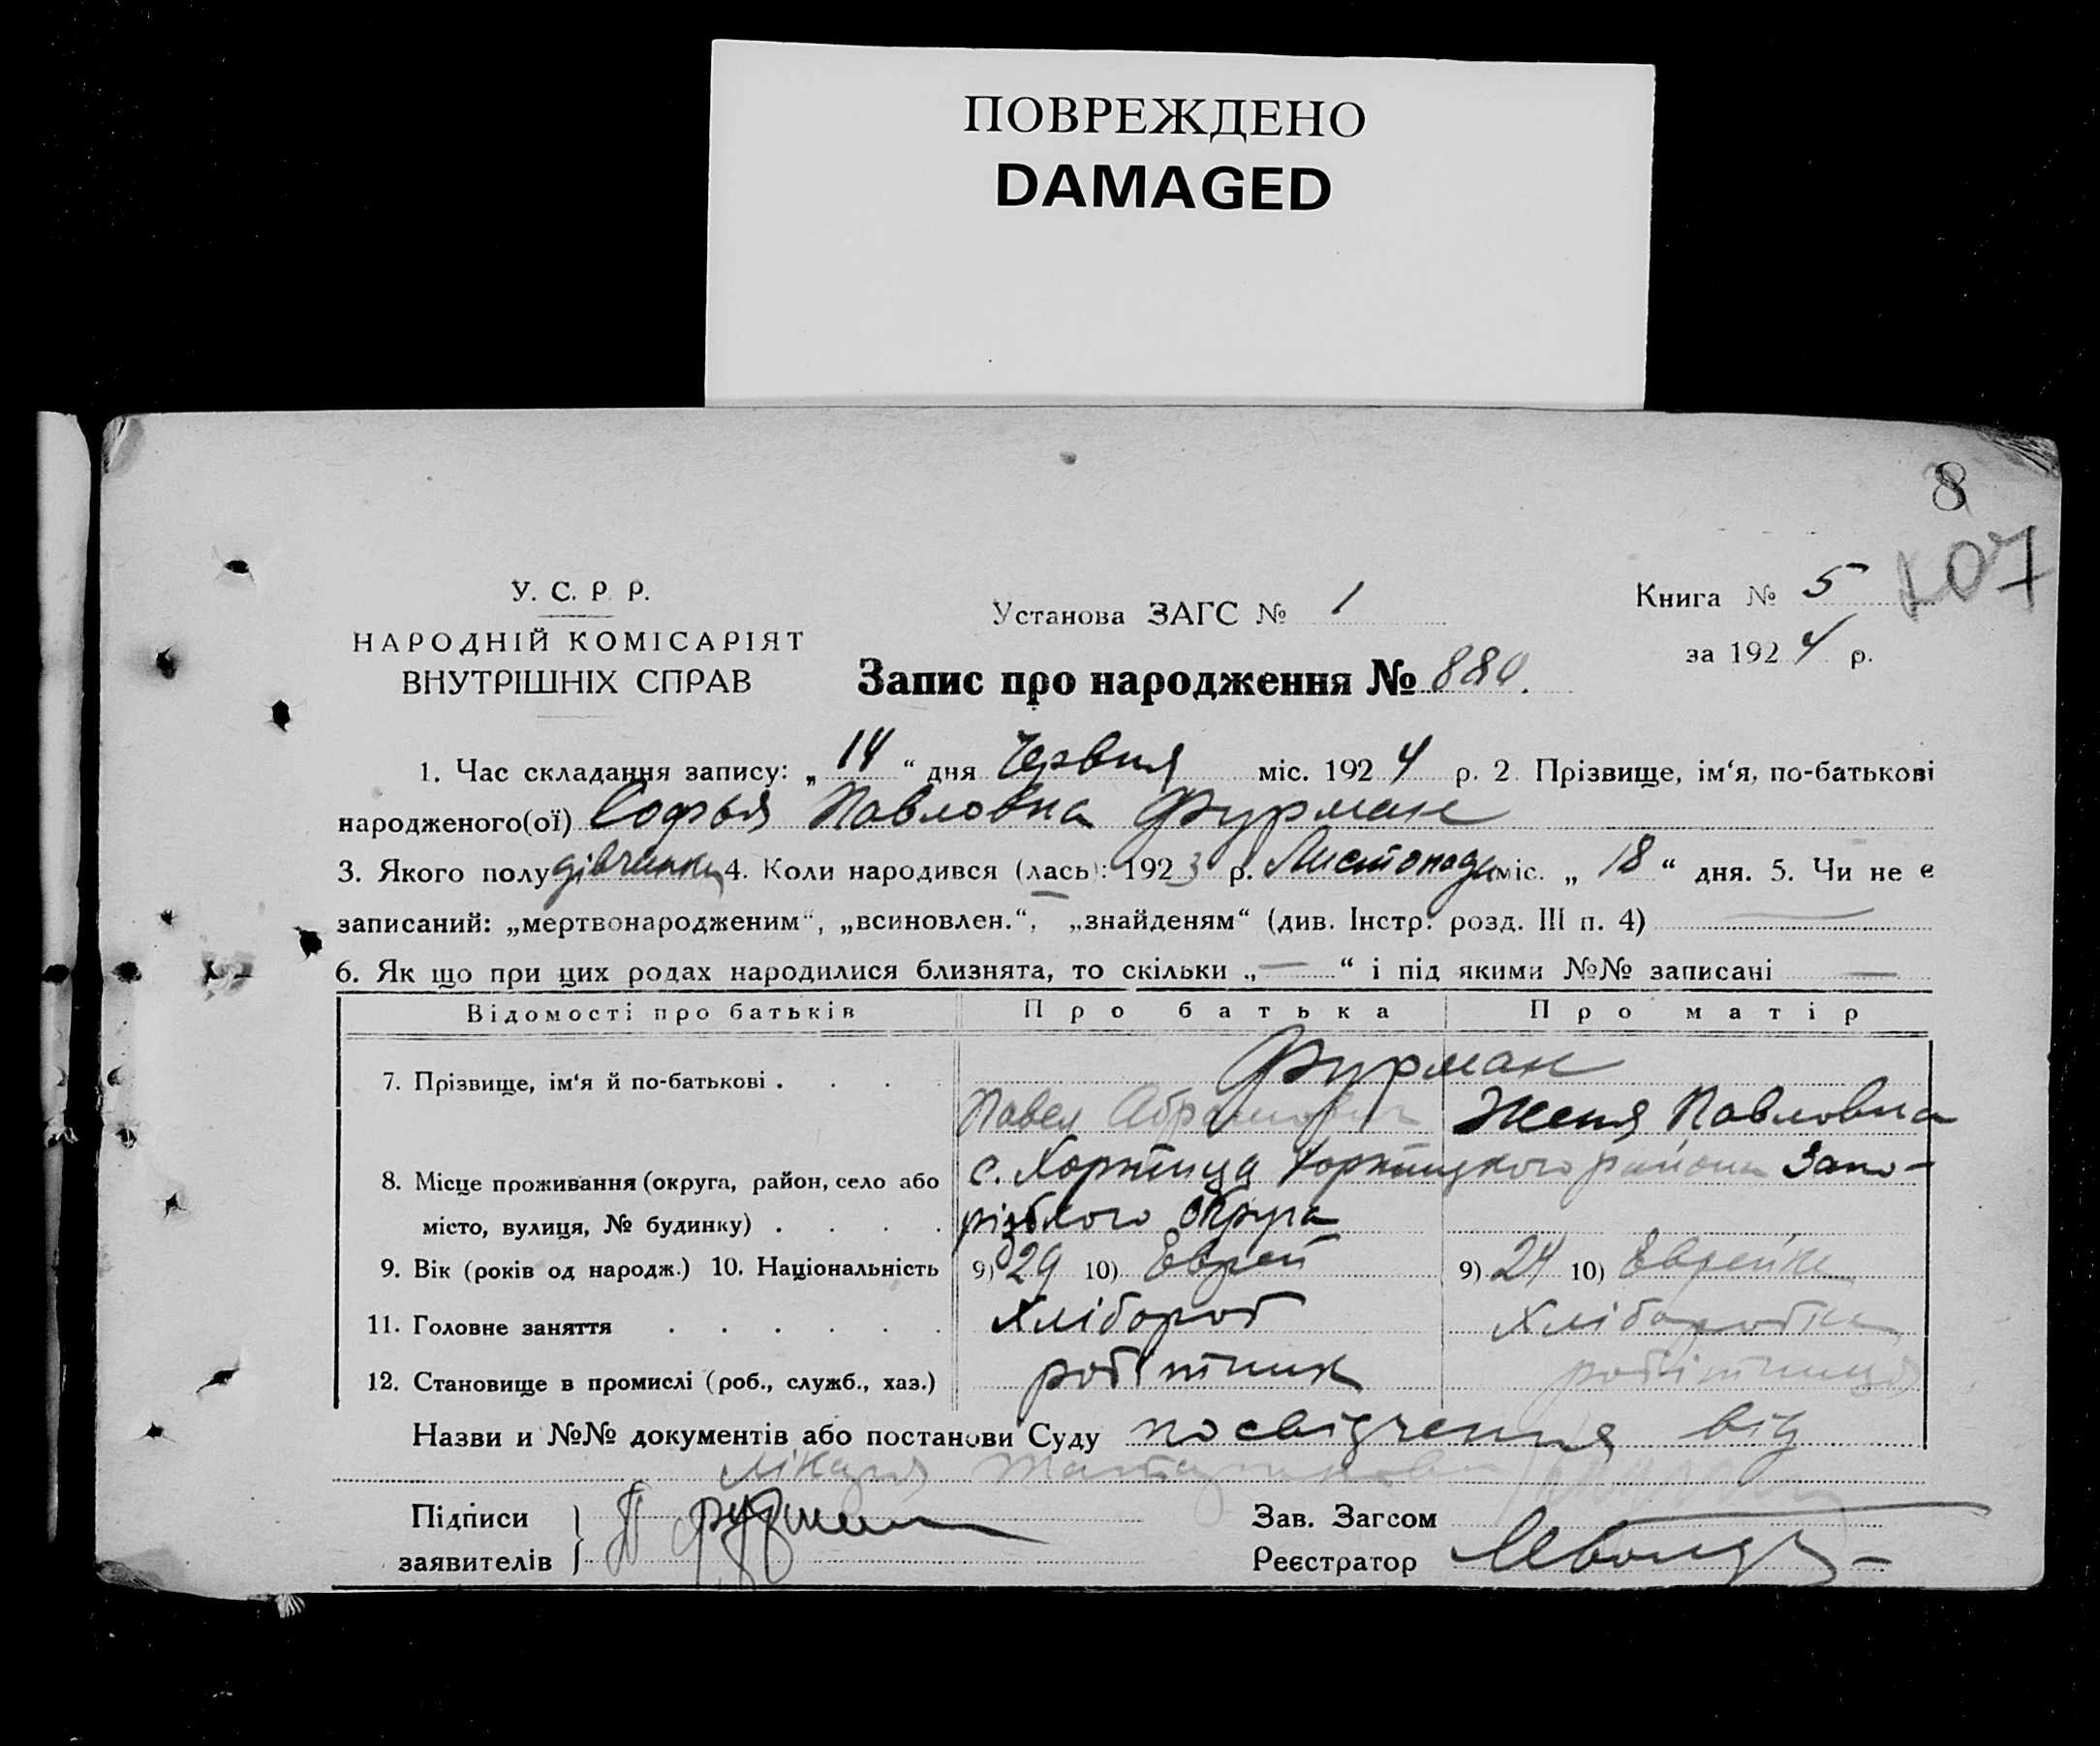 ПОВРЕЖДЕНО
DAMAGED
8
107
У. С. Р. Р.
НАРОДНІЙ КОМІСАРІЯТ
ВНУТРІШНІХ СПРАВ
Установа ЗАГС № 1
Книга № 5
за 1924 р.
Запис про народження № 880.
1. Час складання запису: „14“ дня Червня міс. 1924 р. 2. Прізвище, ім‘я, по-батькові
народженого(ої) Софья Павловна Фурман
3. Якого полу дівчинка 4. Коли народився (лась): 1923 р. Листопада міс. „18“ дня. 5. Чи не є
записаний: „мертвонародженим“, „всиновлен.“, „знайденям“ (див. Інстр. розд. III п. 4) —
6. Як що при цих родах народилися близнята, то скільки „—“ і під якими №№ записані —
Відомості про батьків Про батька Про матір
7. Прізвище, ім‘я й по-батькові . . . . Фурман
Павел Абрамович Женя Павловна
8. Місце проживання (округа, район, село або с. Хортица Хортицкого района Запо-
місто, вулиця, № будинку) . . . . різького округа
9. Вік (років од народж.) 10. Національність 9) 29 10) Еврей 9) 24 10) Еврейка
11. Головне заняття . . . . . . Хлібороб Хліборобка
12. Становище в промислі (роб., служб., хаз.) робітник робітниця
Назви и №№ документів або постанови Суду посвідчення від
лікаря
Підписи
заявителів } П Фурман
Зав. Загсом
Реєстратор